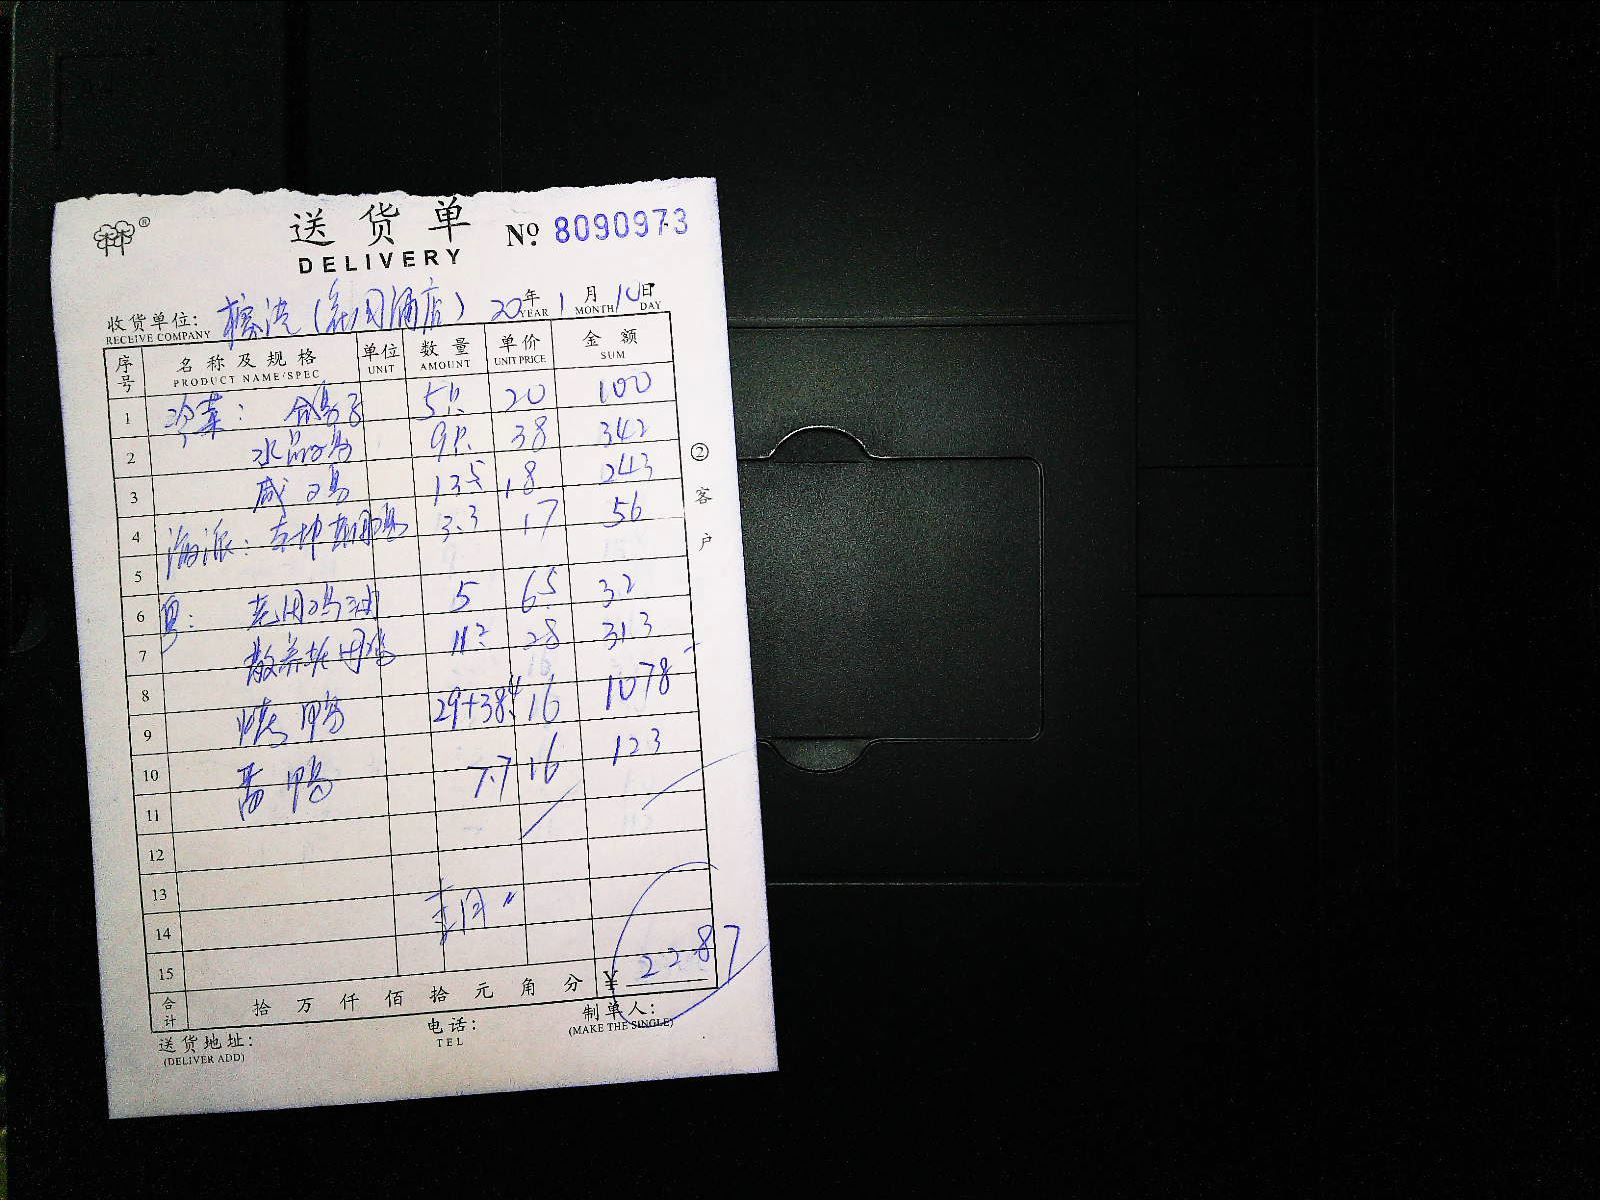 ®
送 货 单
DELIVERY
№ 8090973
收货单位: (花园酒店) 20年 1月 10日
RECEIVE COMPANY YEAR MONTH DAY
序号 名称及规格 单位 数量 单价 金额
PRODUCT NAME/SPEC UNIT AMOUNT UNIT PRICE SUM
1 冷菜: 5只 20 100
2 水晶鸡 9只 38 342
3 咸鸡 13.5 18 243
4 海派: 3.3 17 56
5
6 粤: 老用鸡油 5 6.5 32
7 散养 11.2 28 313
8
9 烤鸭 29+38.4 16 1078
10 鸭 7.7 16 123
11
12
13
14
15
合计 拾 万 仟 佰 拾 元 角 分 ¥ 2287
② 客户
送货地址:
(DELIVER ADD)
电话:
TEL
制单人:
(MAKE THE SINGLE)